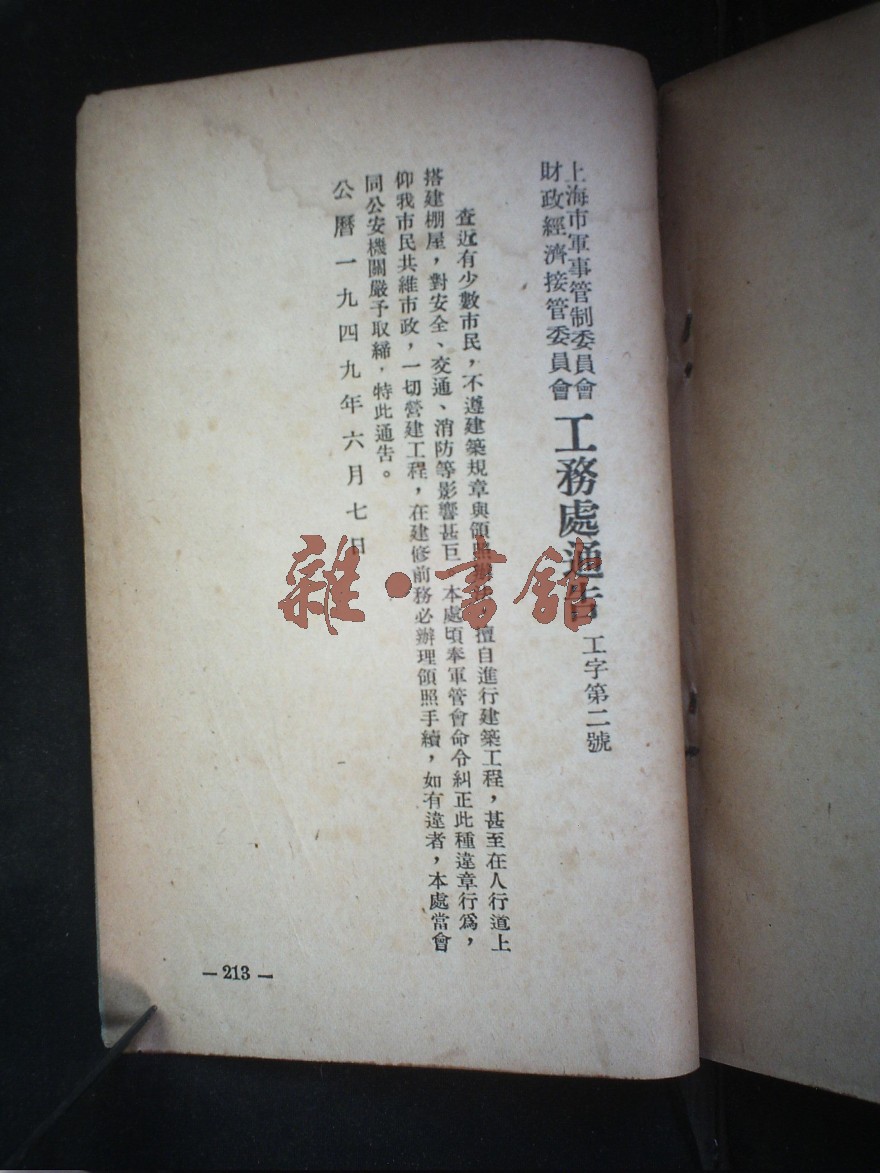 上海市軍事管制委員會
財政經濟接管委員會
工務處通告
工字第二號
查近有少數市民，不遵建築規章與領照辦法，擅自進行建築工程，甚至在人行道上
搭建棚屋，對安全、交通、消防等影響甚巨，本處頃奉軍管會命令糾正此種違章行為，
仰我市民共維市政，一切營建工程，在建修前務必辦理領照手續，如有違者，本處當會
同公安機關嚴予取締，特此通告。
公曆一九四九年六月七日
—213—
雜·書館